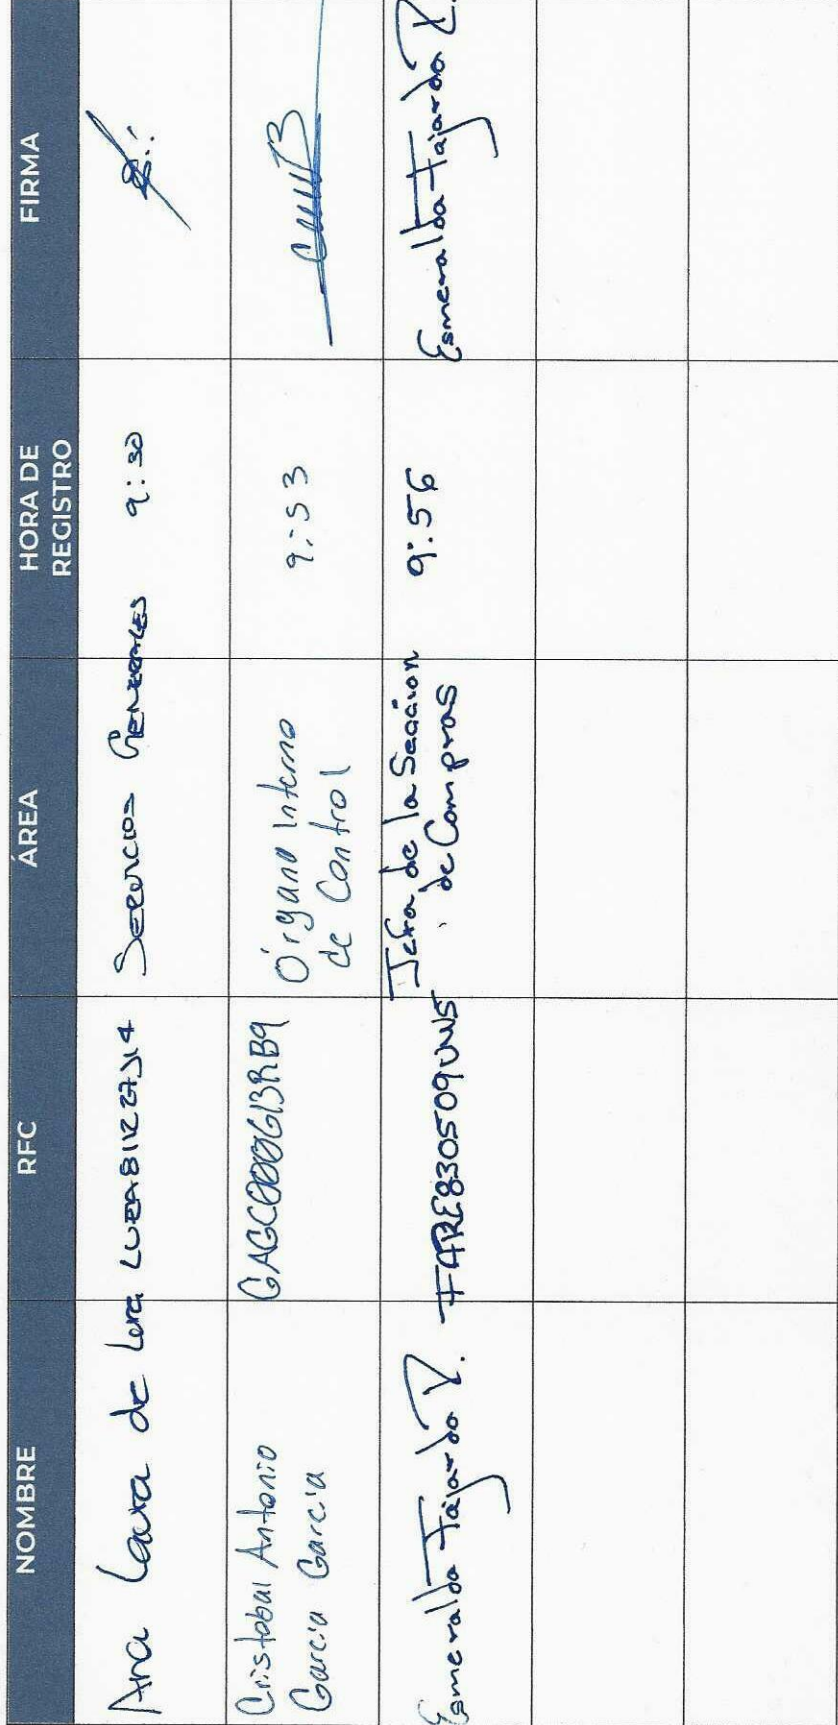 NOMBRE
RFC
ÁREA
HORA DE
REGISTRO
FIRMA
Ana Laura de Lara
Servicios Generales
9:30
Cristobal Antonio
Garcia Garcia
Órgano Interno
de Control
9:53
Esmeralda Fajardo R.
FARE830509UW5
Jefa de la Sección
de Compras
9:56
Esmeralda Fajardo R.